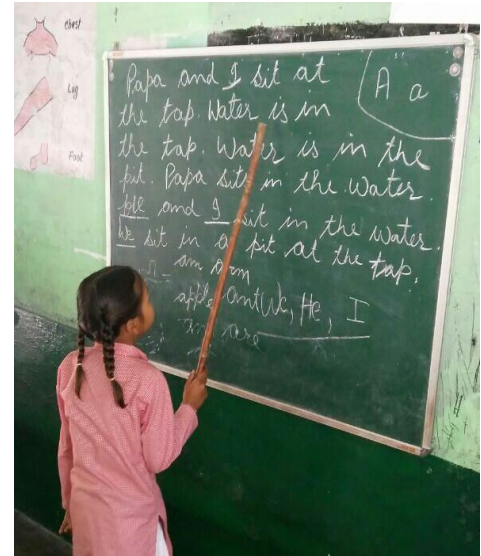 Chest
Leg
Foot
A a
Papa and I sit at
the tap. Water is in
the tap. Water is in the
pit. Papa sits in the water.
and I sit in the water.
We sit in a pit at the tap.
am arm
apple ant We, He, I
are